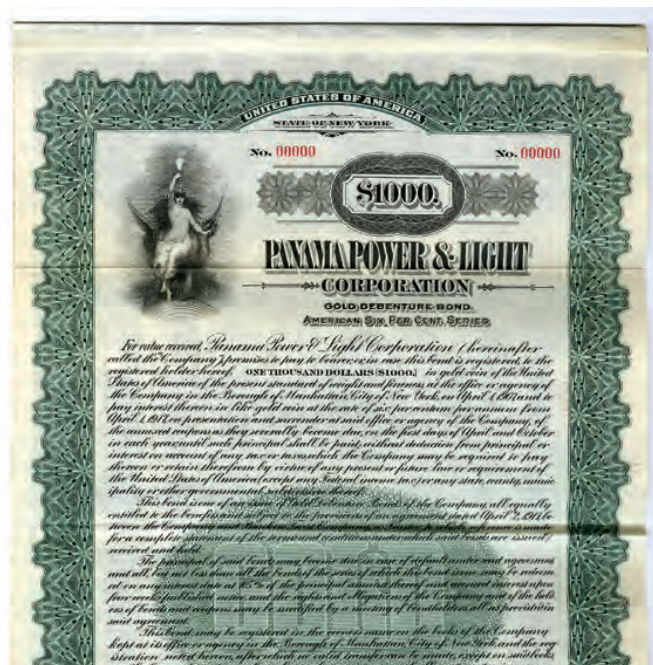 UNITED STATES OF AMERICA
STATE OF NEW YORK
No. 00000 No. 00000
$1000.
PANAMA POWER & LIGHT
CORPORATION
GOLD DEBENTURE BOND.
AMERICAN SIX PER CENT. SERIES
For value received, Panama Power & Light Corporation (hereinafter
called the Company) promises to pay to bearer, or in case this bond is registered, to the
registered holder hereof, ONE THOUSAND DOLLARS [$1000.] in gold coin of the United
States of America of the present standard of weight and fineness, at the office or agency of
the Company in the Borough of Manhattan, City of New York, on April 1, and to
pay interest thereon in like gold coin at the rate of six per centum per annum from
April 1, 1917, on presentation and surrender at said office or agency of the Company, of
the annexed coupons as they severally become due, on the first days of April and October
in each year, until such principal shall be paid, without deduction from principal or
interest on account of any tax or taxes which the Company may be required to pay
thereon or retain therefrom by virtue of any present or future law or requirement of
the United States of America (except any Federal income tax) or any state, county, munic
ipality or other governmental subdivision thereof.
This bond is one of an issue of Gold Debenture Bonds of the Company, all equally
entitled to the benefits and subject to the provisions of an agreement dated April 2, 1917, be
tween the Company and
for a complete statement of the terms and conditions under which said bonds are issued,
received and held.
The principal of said bonds may become due in case of default under said agreement
and all, but not less than all the bonds of the series of which this bond is one, may be redeem
ed on any interest date at % of the principal amount thereof and accrued interest upon
four weeks published notice, and the rights and obligations of the Company and of the hold
ers of bonds and coupons may be modified by a meeting of bondholders, all as provided in
said agreement.
This bond may be registered in the owner's name on the books of the Company
kept at its office or agency in the Borough of Manhattan, City of New York, and the reg
istration noted hereon, after which no valid transfer can be made, except on said books,